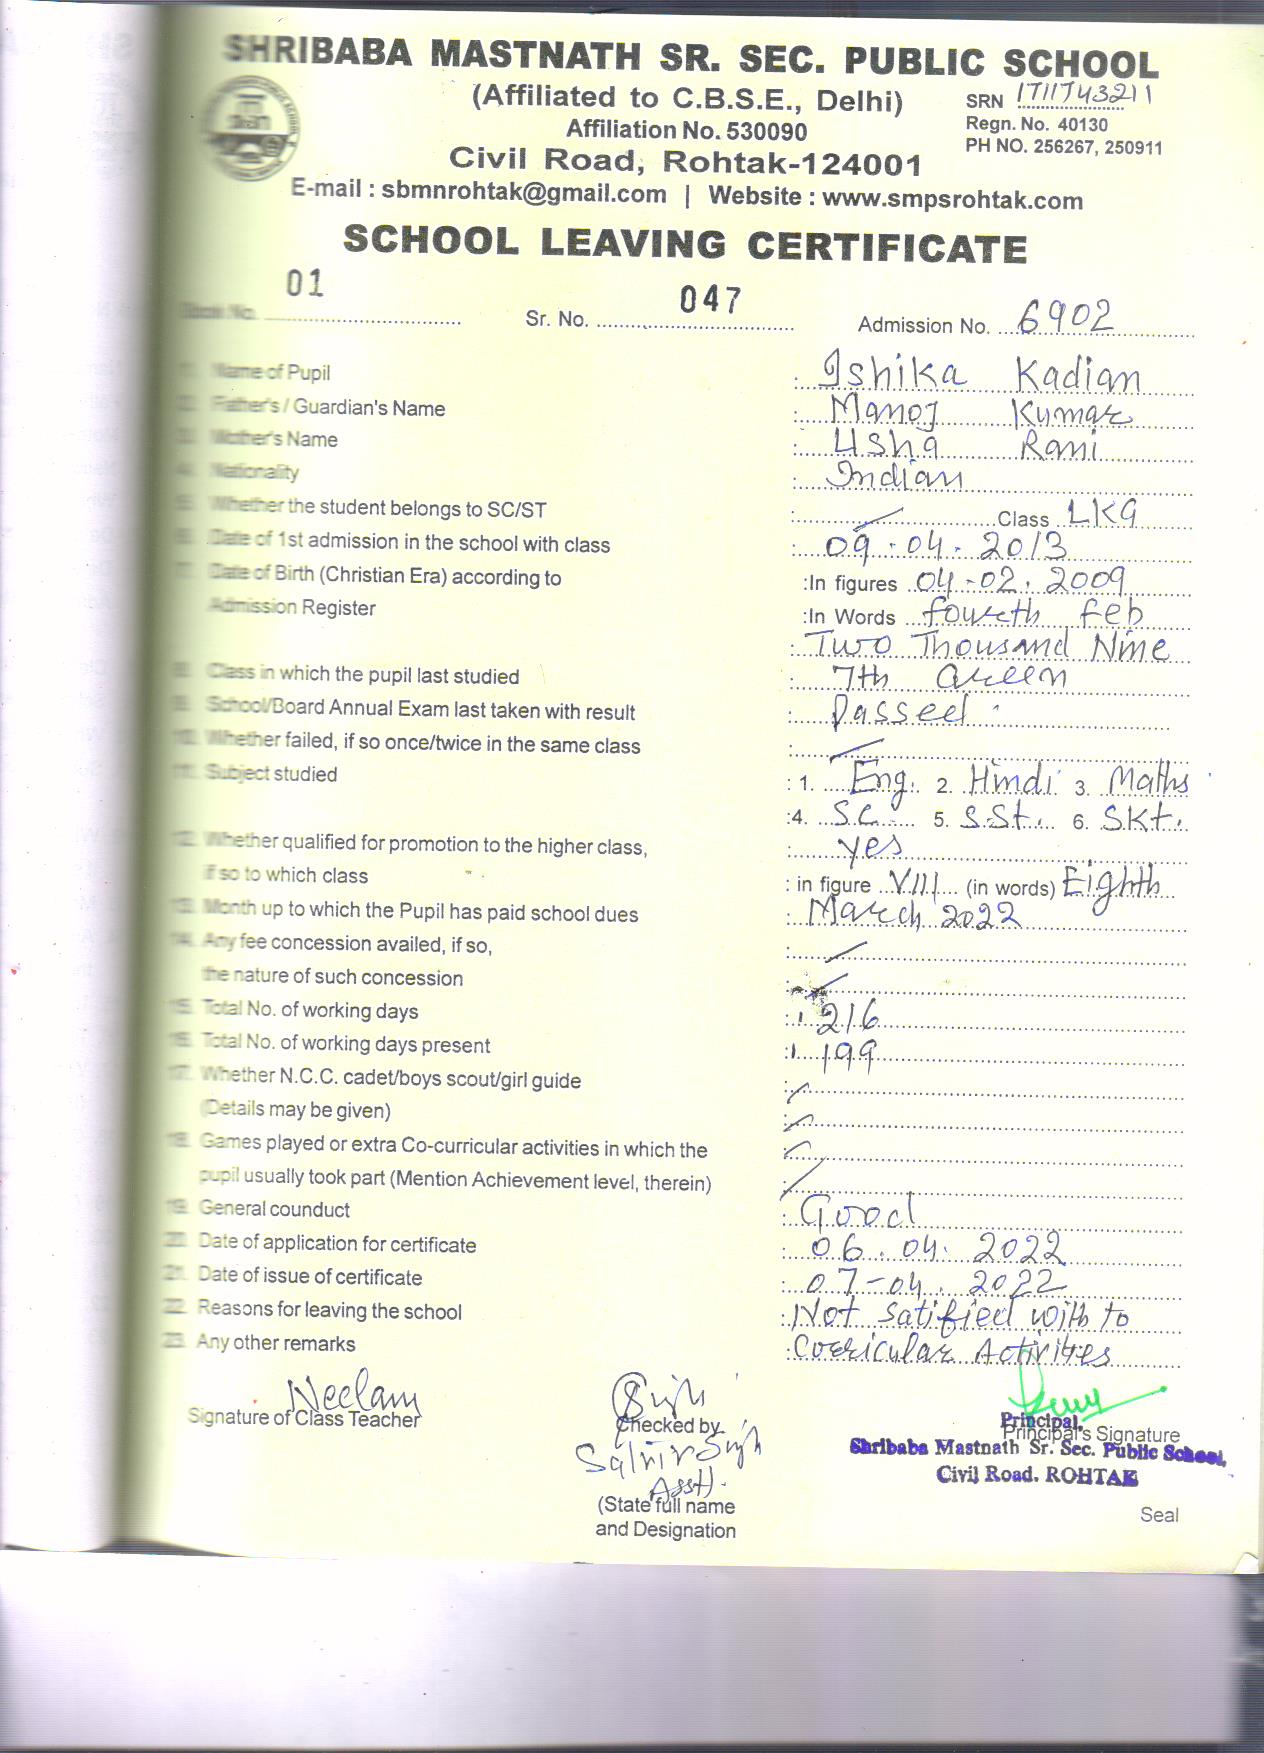 SHRIBABA MASTNATH SR. SEC. PUBLIC SCHOOL
(Affiliated to C.B.S.E., Delhi)
SRN 1711743211
Affiliation No. 530090
Regn. No. 40130
Civil Road, Rohtak-124001
PH NO. 256267, 250911
E-mail : sbmnrohtak@gmail.com | Website : www.smpsrohtak.com
SCHOOL LEAVING CERTIFICATE
Book No. 01 Sr. No. 047 Admission No. 6902
1. Name of Pupil : Ishika Kadian
2. Father's / Guardian's Name : Manoj Kumar
3. Mother's Name : Usha Rani
4. Nationality : Indian
5. Whether the student belongs to SC/ST : Class LKG
6. Date of 1st admission in the school with class : 09-04-2013
7. Date of Birth (Christian Era) according to :In figures 04-02.2009
Admission Register :In Words fourth feb
: Two Thousand Nine
8. Class in which the pupil last studied : 7th
9. School/Board Annual Exam last taken with result : Passed
10. Whether failed, if so once/twice in the same class :
11. Subject studied : 1. Eng. 2. Hindi 3. Maths
:4. S.C. 5. S.St. 6. Skt.
12. Whether qualified for promotion to the higher class, : yes
if so to which class : in figure VIII (in words) Eighth
13. Month up to which the Pupil has paid school dues : March 2022
14. Any fee concession availed, if so, :
the nature of such concession :
15. Total No. of working days : 216
16. Total No. of working days present : 199
17. Whether N.C.C. cadet/boys scout/girl guide :
(Details may be given) :
18. Games played or extra Co-curricular activities in which the :
pupil usually took part (Mention Achievement level, therein) :
19. General counduct : Good
20. Date of application for certificate : 06.04.2022
21. Date of issue of certificate : 07-04.2022
22. Reasons for leaving the school : Not Satified with to
23. Any other remarks : Corricular Activities
Neelam
Signature of Class Teacher
Checked by
Satvir Singh
Asstt.
(State full name
and Designation
Principal,
Principal's Signature
Shribaba Mastnath Sr. Sec. Public School,
Civil Road. ROHTAK
Seal